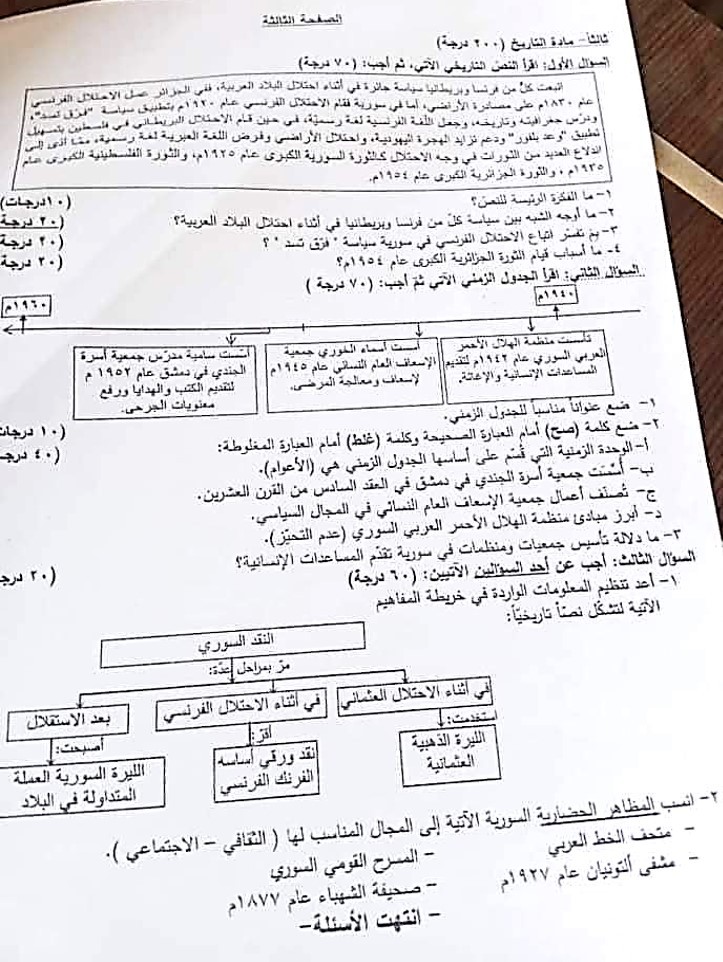 الصفحة الثالثة
ثالثاً- مادة التاريخ (٢٠٠ درجة)
السؤال الأول: اقرأ النص التاريخي الآتي، ثم أجب: (٧٠ درجة)
اتبعت كلّ من فرنسا وبريطانيا سياسة جائرة في أثناء احتلال البلاد العربية، ففي الجزائر عمل الاحتلال الفرنسي
عام ١٨٣٠م على مصادرة الأراضي، أما في سورية فقام الاحتلال الفرنسي عام ١٩٢٠م بتطبيق سياسة "فرّق تسد"،
ودرّس جغرافيته وتاريخه، وجعل اللغة الفرنسية لغة رسميّة، في حين قام الاحتلال البريطاني في فلسطين بتسهيل
تطبيق "وعد بلفور" ودعم تزايد الهجرة اليهودية، واحتلال الأراضي وفرض اللغة العبرية لغة رسمية، ممّا أدى إلى
اندلاع العديد من الثورات في وجه الاحتلال كالثورة السورية الكبرى عام ١٩٢٥م، والثورة الفلسطينية الكبرى عام
١٩٣٥م ، والثورة الجزائرية الكبرى عام ١٩٥٤م.
١- ما الفكرة الرئيسة للنص؟ (١٠ درجات)
٢- ما أوجه الشبه بين سياسة كلّ من فرنسا وبريطانيا في أثناء احتلال البلاد العربية؟ (٢٠ درجة
٣- بمَ تفسّر اتباع الاحتلال الفرنسي في سورية سياسة " فرّق تسد " ؟ (٢٠ درجة
٤- ما أسباب قيام الثورة الجزائرية الكبرى عام ١٩٥٤م؟ (٢٠ درجة
السؤال الثاني: اقرأ الجدول الزمني الآتي ثمّ أجب: (٧٠ درجة )
١٩٤٠م
١٩٦٠م
تأسست منظمة الهلال الأحمر
العربي السوري عام ١٩٤٢م لتقديم
المساعدات الإنسانية والإغاثة.
أسست أسماء الخوري جمعية
الإسعاف العام النسائي عام ١٩٤٥م
لإسعاف ومعالجة المرضى.
أسّست سامية مدرّس جمعية أسرة
الجندي في دمشق عام ١٩٥٢ م
لتقديم الكتب والهدايا ورفع
معنويات الجرحى.
١- ضع عنواناً مناسباً للجدول الزمني. (١٠ درجات
٢- ضع كلمة (صح) أمام العبارة الصحيحة وكلمة (غلط) أمام العبارة المغلوطة: (٤٠ درجـ
أ-الوحدة الزمنية التي قُسّم على أساسها الجدول الزمني هي (الأعوام).
ب- أُسّست جمعية أسرة الجندي في دمشق في العقد السادس من القرن العشرين.
ج- تُصنّف أعمال جمعية الإسعاف العام النسائي في المجال السياسي.
د- أبرز مبادئ منظمة الهلال الأحمر العربي السوري (عدم التحيّز).
٣- ما دلالة تأسيس جمعيات ومنظمات في سورية تقدّم المساعدات الإنسانية؟ (٢٠ درجـ
السؤال الثالث: أجب عن أحد السؤالين الآتيين: (٦٠ درجة)
١- أعد تنظيم المعلومات الواردة في خريطة المفاهيم
الآتية لتشكّل نصّاً تاريخيّاً:
النقد السوري
مرّ بمراحل عدّة:
في أثناء الاحتلال العثماني
في أثناء الاحتلال الفرنسي
بعد الاستقلال
استخدمت:
أقرّ:
أصبحت:
الليرة الذهبية
العثمانية
نقد ورقي أساسه
الفرنك الفرنسي
الليرة السورية العملة
المتداولة في البلاد
٢- انسب المظاهر الحضارية السورية الآتية إلى المجال المناسب لها ( الثقافي – الاجتماعي ).
- متحف الخط العربي - المسرح القومي السوري
- مشفى ألتونيان عام ١٩٢٧م - صحيفة الشهباء عام ١٨٧٧م
- انتهت الأسئلة-